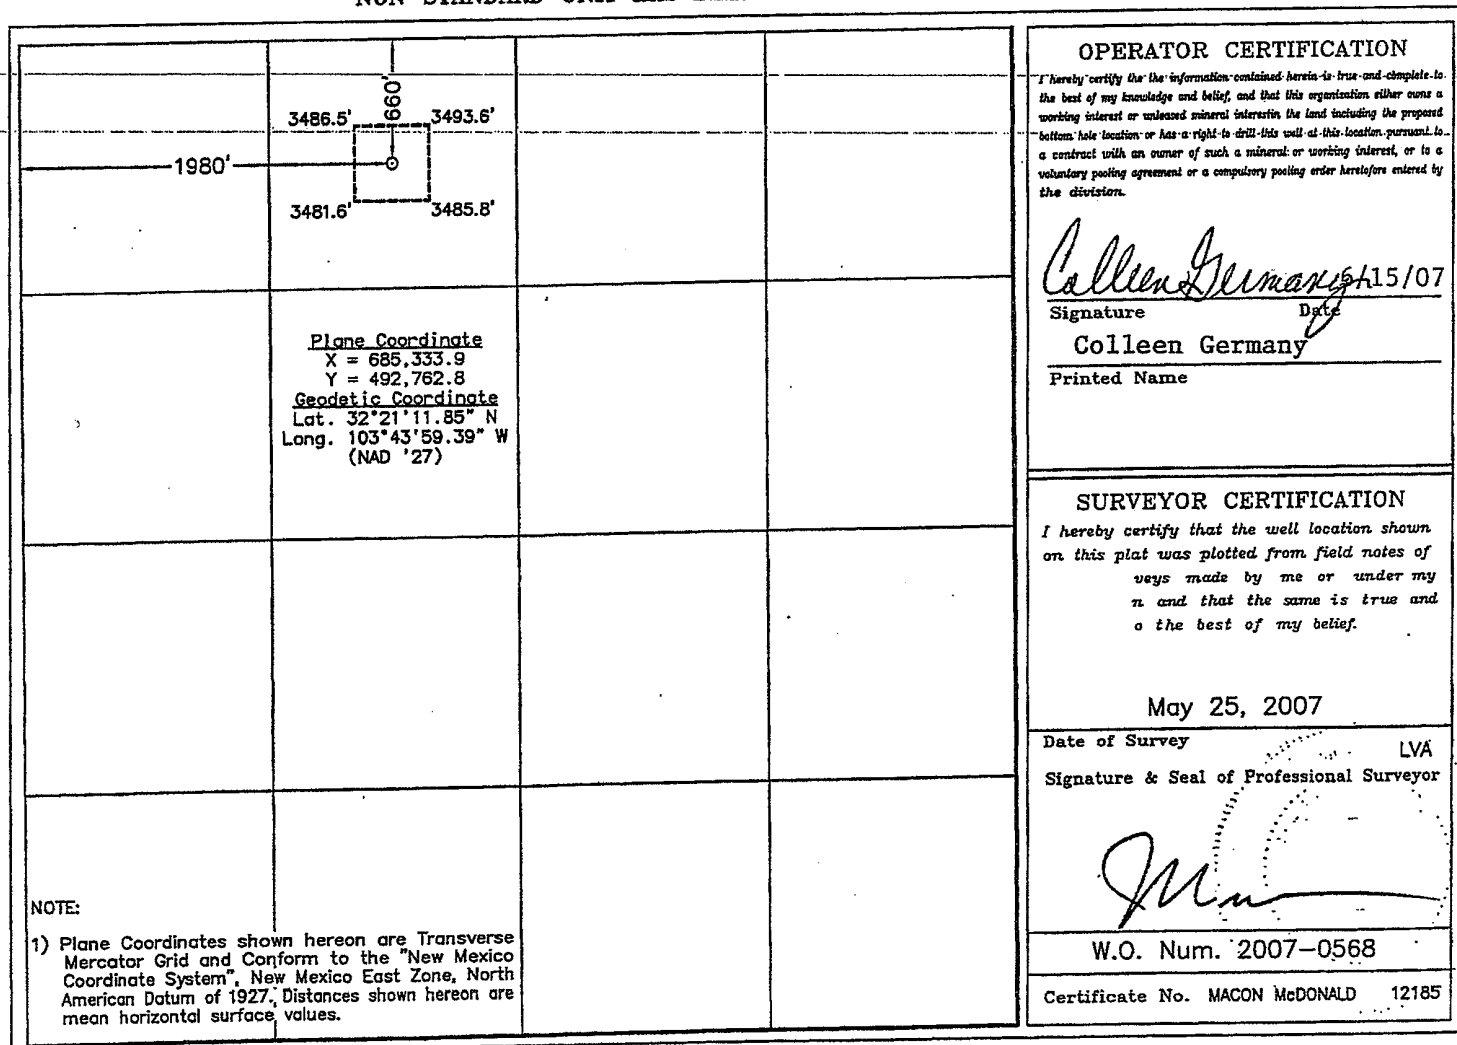 660'
3486.5' 3493.6'
1980'
3481.6' 3485.8'
Plane Coordinate
X = 685,333.9
Y = 492,762.8
Geodetic Coordinate
Lat. 32°21'11.85" N
Long. 103°43'59.39" W
(NAD '27)
NOTE:
1) Plane Coordinates shown hereon are Transverse
Mercator Grid and Conform to the "New Mexico
Coordinate System", New Mexico East Zone, North
American Datum of 1927. Distances shown hereon are
mean horizontal surface values.
OPERATOR CERTIFICATION
I hereby certify the the information contained herein is true and complete to
the best of my knowledge and belief, and that this organization either owns a
working interest or unleased mineral interestin the land including the proposed
bottom hole location or has a right to drill this well at this location pursuant to
a contract with an owner of such a mineral or working interest, or to a
voluntary pooling agreement or a compulsory pooling order heretofore entered by
the division.
Colleen Germany 6/15/07
Signature Date
Colleen Germany
Printed Name
SURVEYOR CERTIFICATION
I hereby certify that the well location shown
on this plat was plotted from field notes of
veys made by me or under my
n and that the same is true and
o the best of my belief.
May 25, 2007
Date of Survey LVA
Signature & Seal of Professional Surveyor
W.O. Num. 2007-0568
Certificate No. MACON McDONALD 12185